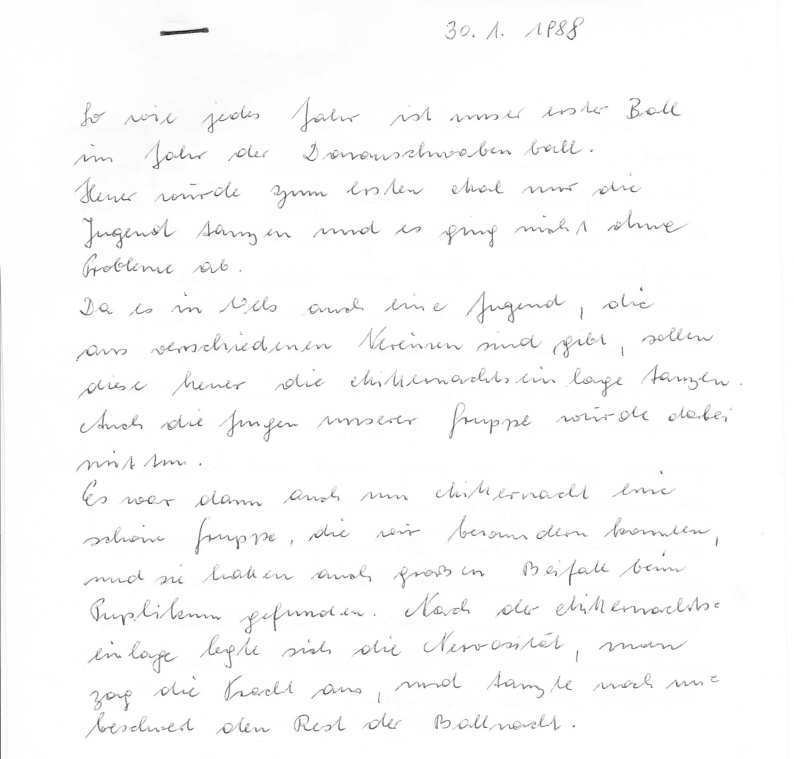 30. 1. 1988
So wie jedes Jahr ist unser erster Ball
im Jahr der Donauschwabenball.
Heuer würde zum ersten Mal nur die
Jugend tanzen und es ging nicht ohne
Probleme ab.
Da es in Wels auch eine Jugend, die
aus verschiedenen Vereinen sind, gibt, sollen
diese heuer die Mitternachtseinlage tanzen.
Auch die Jungen unserer Gruppe würde dabei
mittun.
Es war dann auch um Mitternacht eine
schöne Gruppe, die wir bewundern konnten,
und sie haben auch großen Beifall beim
Puplikum gefunden. Nach der Mitternachts=
einlage legte sich die Nervosität, man
zog die Tracht aus, und tanzte noch un=
beschwert den Rest der Ballnacht.